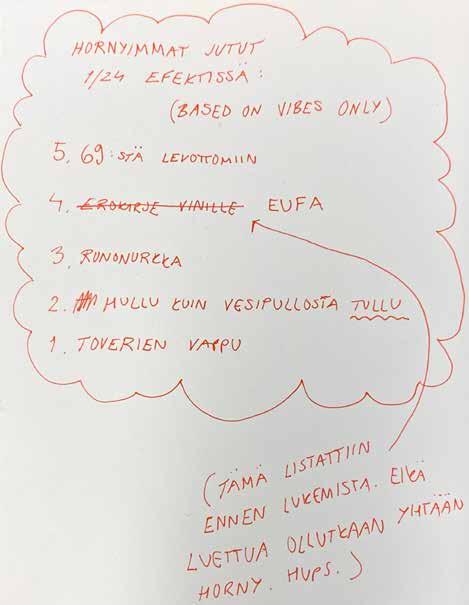 HORNYIMMAT JUTUT
1/24 EFEKTISSÄ:
(BASED ON VIBES ONLY)
5. 69:STÄ LEVOTTOMIIN
4. EROKIRJE VINILLE EUFA
3. RUNONURKKA
2. HULLU KUIN VESIPULLOSTA TULLU
1. TOVERIEN VAPPU
(TÄMÄ LISTATTIIN
ENNEN LUKEMISTA. EIKÄ
LUETTUA OLLUTKAAN YHTÄÄN
HORNY. HUPS.)